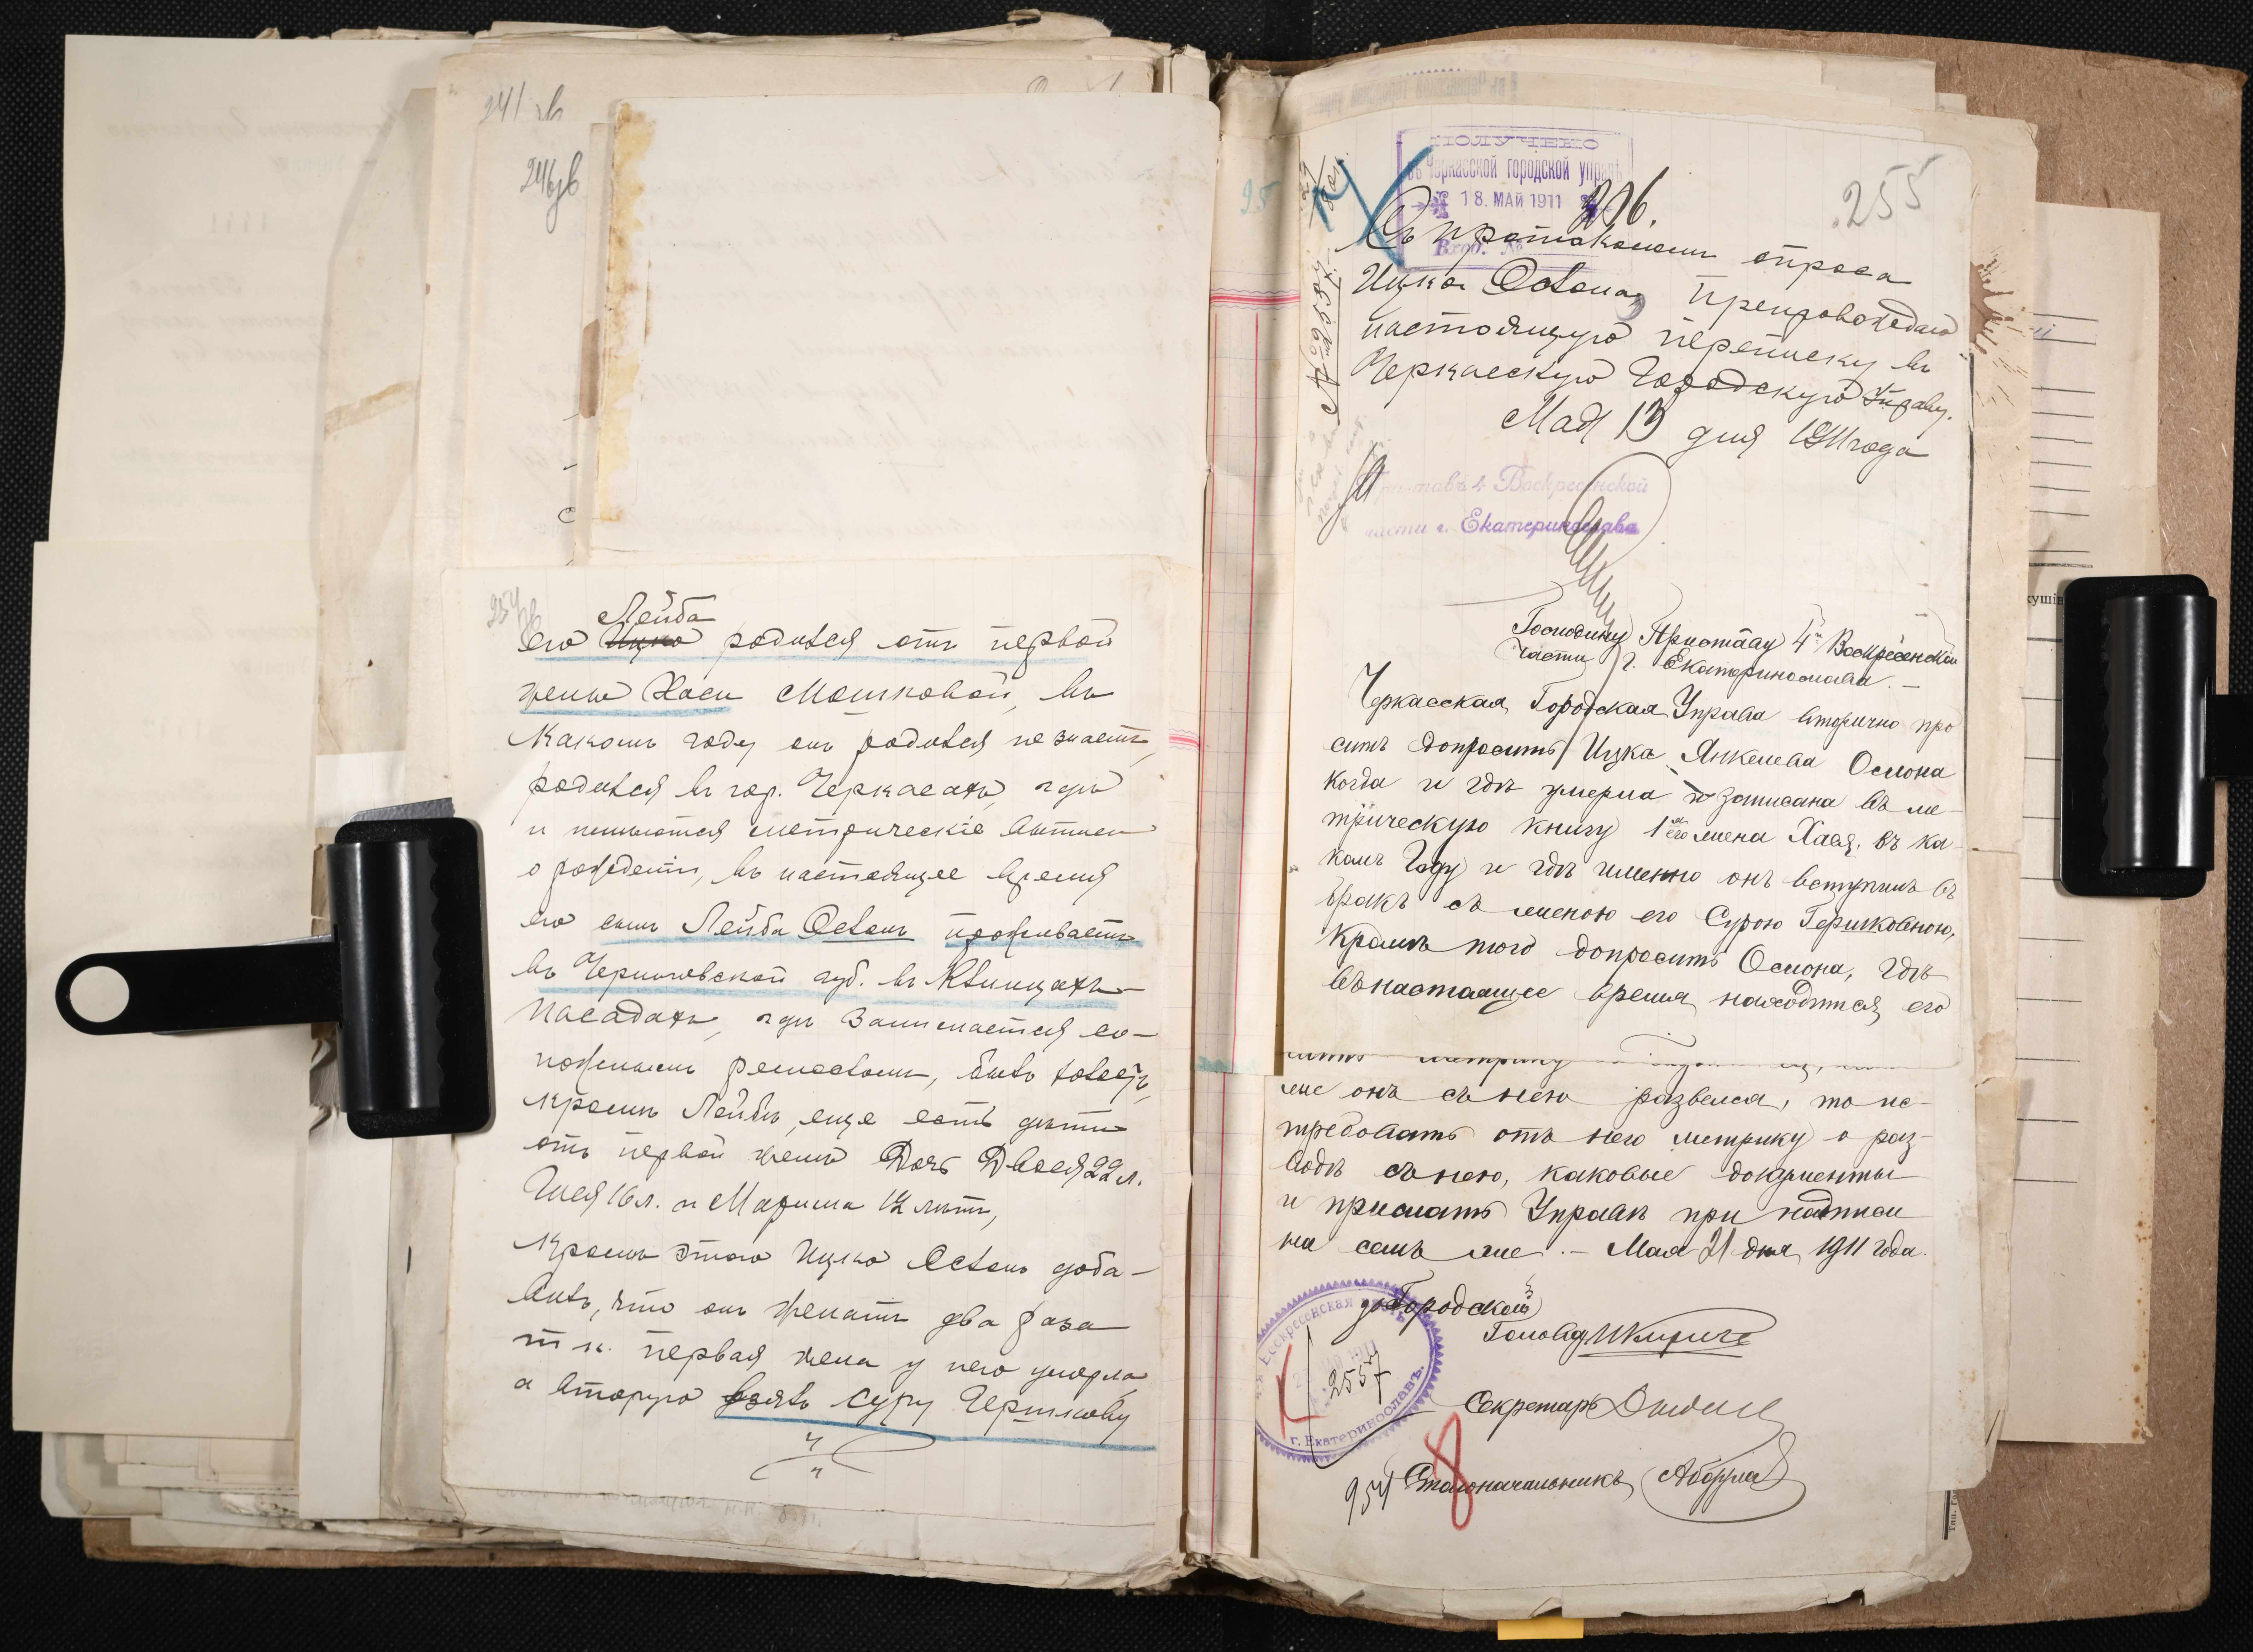 241 зв
246 зв
254 зв
Лейба
его Ицко родился отъ первой
жены Хаси Мошковой, въ
какомъ году онъ родился не знаетъ,
родился въ гор. Черкасахъ, гдѣ
и имѣются метрическіе
о рожденіи, въ настоящее время
его сынъ Лейба Ослонъ проживаетъ
въ Черниговской губ. въ Клинцахъ
Посадахъ, гдѣ занимается са-
пожнымъ ремесломъ,
кромѣ Лейбы, еще есть дѣти
отъ первой жены Дочь Двося 22 л.
16 л. и 12 лѣтъ,
кромѣ этого Ицко Ослонъ доба-
вилъ, что онъ женатъ два раза
т. к. первая жена у него умерла,
а вторую взялъ Суру Гершкову
255
ПОЛУЧЕНО
въ Черкасской городской управѣ
18. МАЙ 1911
Вход. №
206.
Съ протоколомъ опроса
Ицка Ослона препровождаю
настоящую переписку въ
Черкасскую Городскую Управу.
Мая 13 дня 1911 года
№ 2557
Приставъ 4 Воскресенской
части г. Екатеринослава
Господину Приставу 4й Воскресенской
части г. Екатеринослава. –
Черкасская Городская Управа вторично про
ситъ допросить Ицка Янкелева Ослона
когда и гдѣ умерла и записана въ ме-
трическую книгу 1ая его жена Хася, въ ка-
комъ году и гдѣ именно онъ вступилъ въ
бракъ съ женою его Сурою Гершковною,
кромѣ того допросить Ослона, гдѣ
въ настоящее время находится его
же онъ съ нею развелся, то ис-
требовать отъ него метрику о раз-
водѣ съ нею, каковые документы
и прислать Управѣ при надписи
на семъ же. – Мая 21 дня 1911 года.
за Городской
Голова
2557
Воскресенская часть
г. Екатеринославъ.
Секретарь
8
954 Столоначальникъ